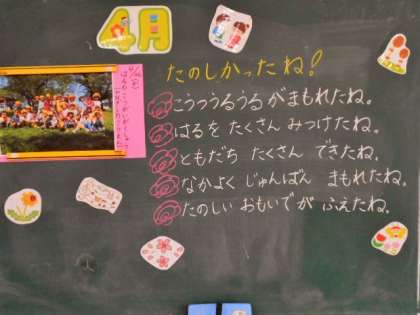 4月
たのしかったね!
こうつうるうるがまもれたね。
はるを たくさん みつけたね。
ともだち たくさん できたね。
なかよく じゅんばん まもれたね。
たのしい おもいでが ふえたね。